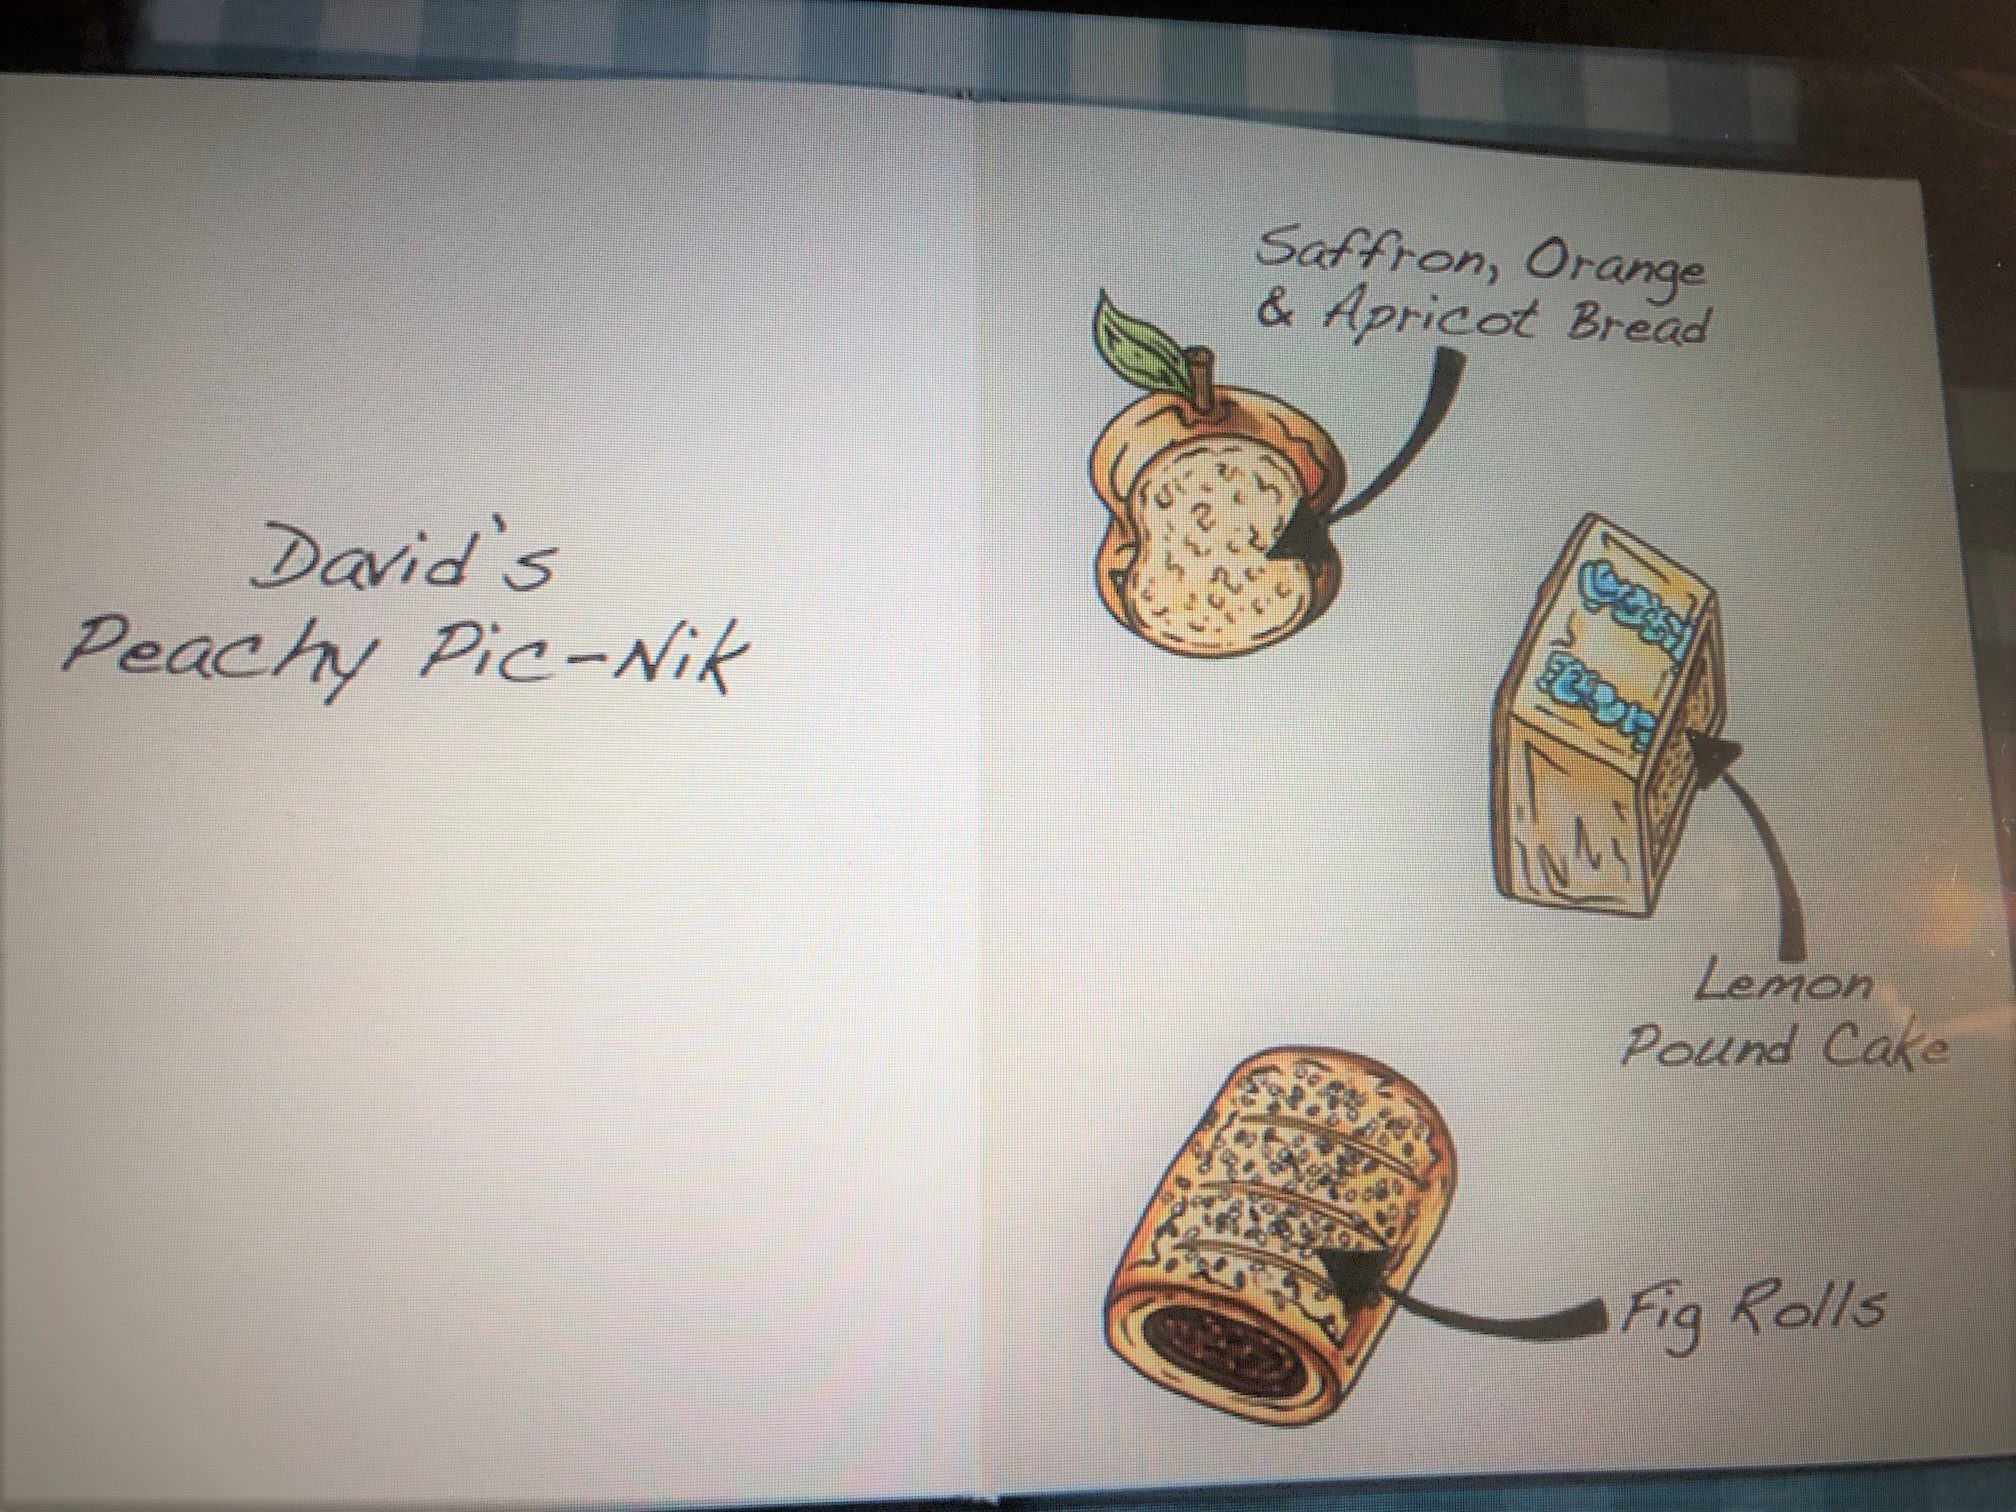 David's
Peachy Pic-Nik
Saffron, Orange
& Apricot Bread
Lemon
Pound Cake
Fig Rolls